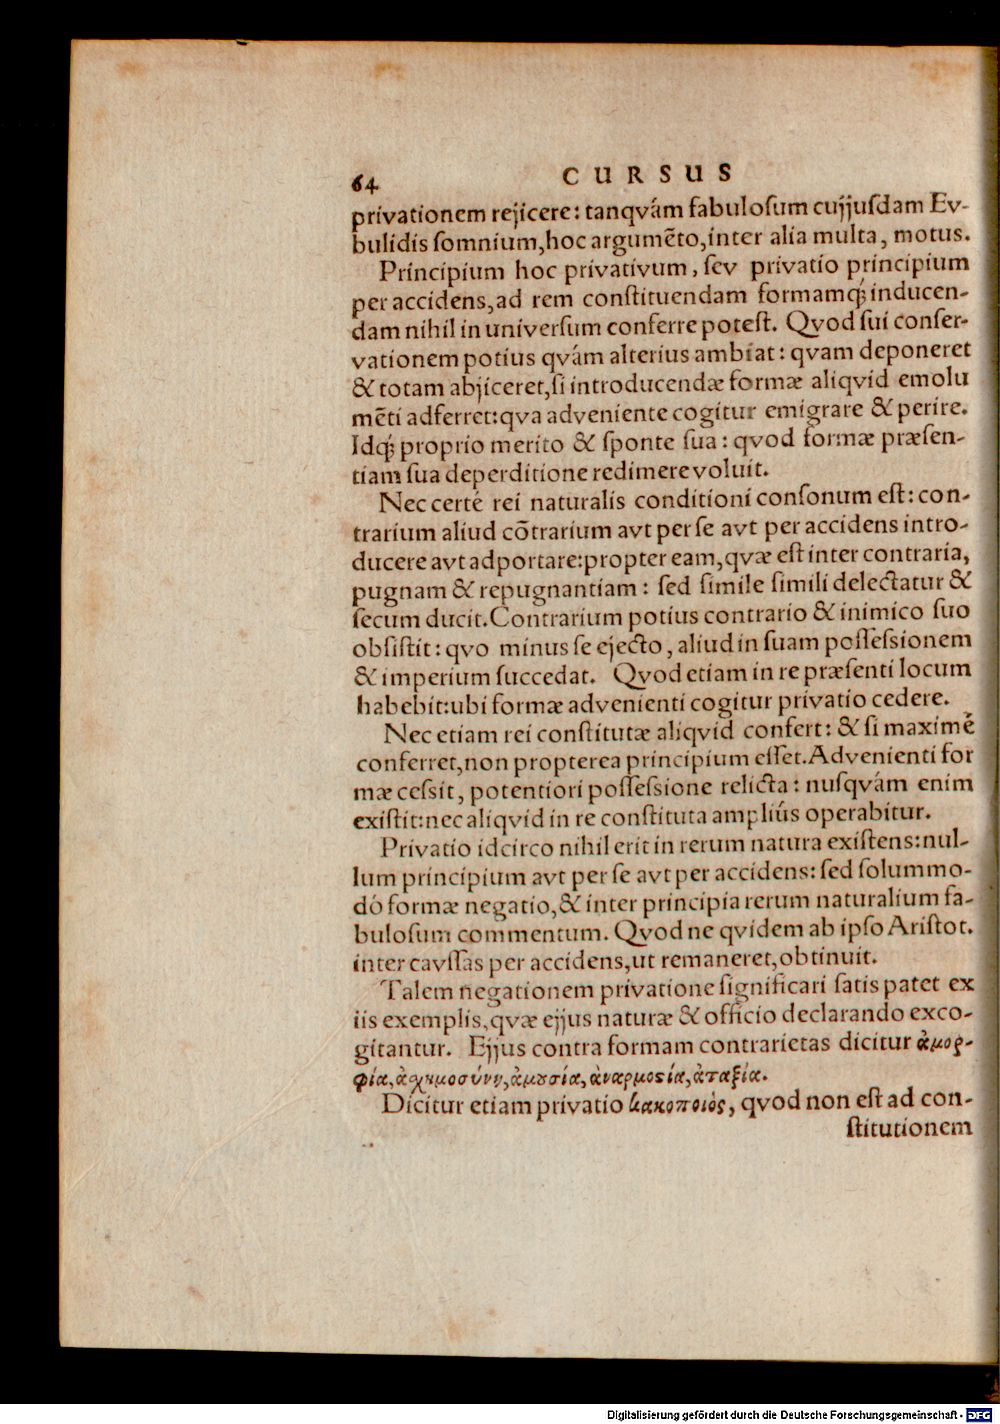 64 CURSUS
privationem rejicere: tanqvám fabuloſum cujjuſdam Ev-
bulidis ſomnium, hoc argumẽto, inter alia multa, motus.
Principium hoc privativum, ſev privatio principium
per accidens, ad rem conſtituendam formamq́; inducen-
dam nihil in univerſum conferre poteſt. Qvod ſui conſer-
vationem potius qvám alterius ambiat: qvam deponeret
& totam abjiceret, ſi introducendæ formæ aliqvid emolu
mẽti adferret: qva adveniente cogitur emigrare & perire.
Idq́; proprio merito & ſponte ſua: qvod formæ præſen-
tiam ſua deperditione redimere voluit.
Nec certé rei naturalis conditioni conſonum eſt: con-
trarium aliud cõtrarium avt per ſe avt per accidens intro-
ducere avt adportare: propter eam, qvæ eſt inter contraria,
pugnam & repugnantiam: ſed ſimile ſimili delectatur &
ſecum ducit. Contrarium potius contrario & inimico ſuo
obſiſtit: qvo minus ſe ejecto, aliud in ſuam poſſeſsionem
& imperium ſuccedat. Qvod etiam in re præſenti locum
habebit: ubi formæ advenienti cogitur privatio cedere.
Nec etiam rei conſtitutæ aliqvid confert: & ſi maximé
conferret, non propterea principium eſſet. Advenienti for
mæ ceſsit, potentiori poſſeſsione relicta: nuſqvám enim
exiſtit: nec aliqvid in re conſtituta ampliús operabitur.
Privatio idcirco nihil erit in rerum natura exiſtens: nul-
lum principium avt per ſe avt per accidens: ſed ſolummo-
dó formæ negatio, & inter principia rerum naturalium fa-
buloſum commentum. Qvod ne qvidem ab ipſo Ariſtot.
inter cavſſas per accidens, ut remaneret, obtinuit.
Talem negationem privatione ſignificari ſatis patet ex
iis exemplis, qvæ ejjus naturæ & officio declarando exco-
gitantur. Ejjus contra formam contrarietas dicitur ἀμορ-
φία, ἀχημοσύνη, ἀμουσία, ἀναρμοςία, ἀταξία.
Dicitur etiam privatio κακοποιὸς, qvod non eſt ad con-
ſtitutionem
Digitalisierung gefördert durch die Deutsche Forschungsgemeinschaft - DFG